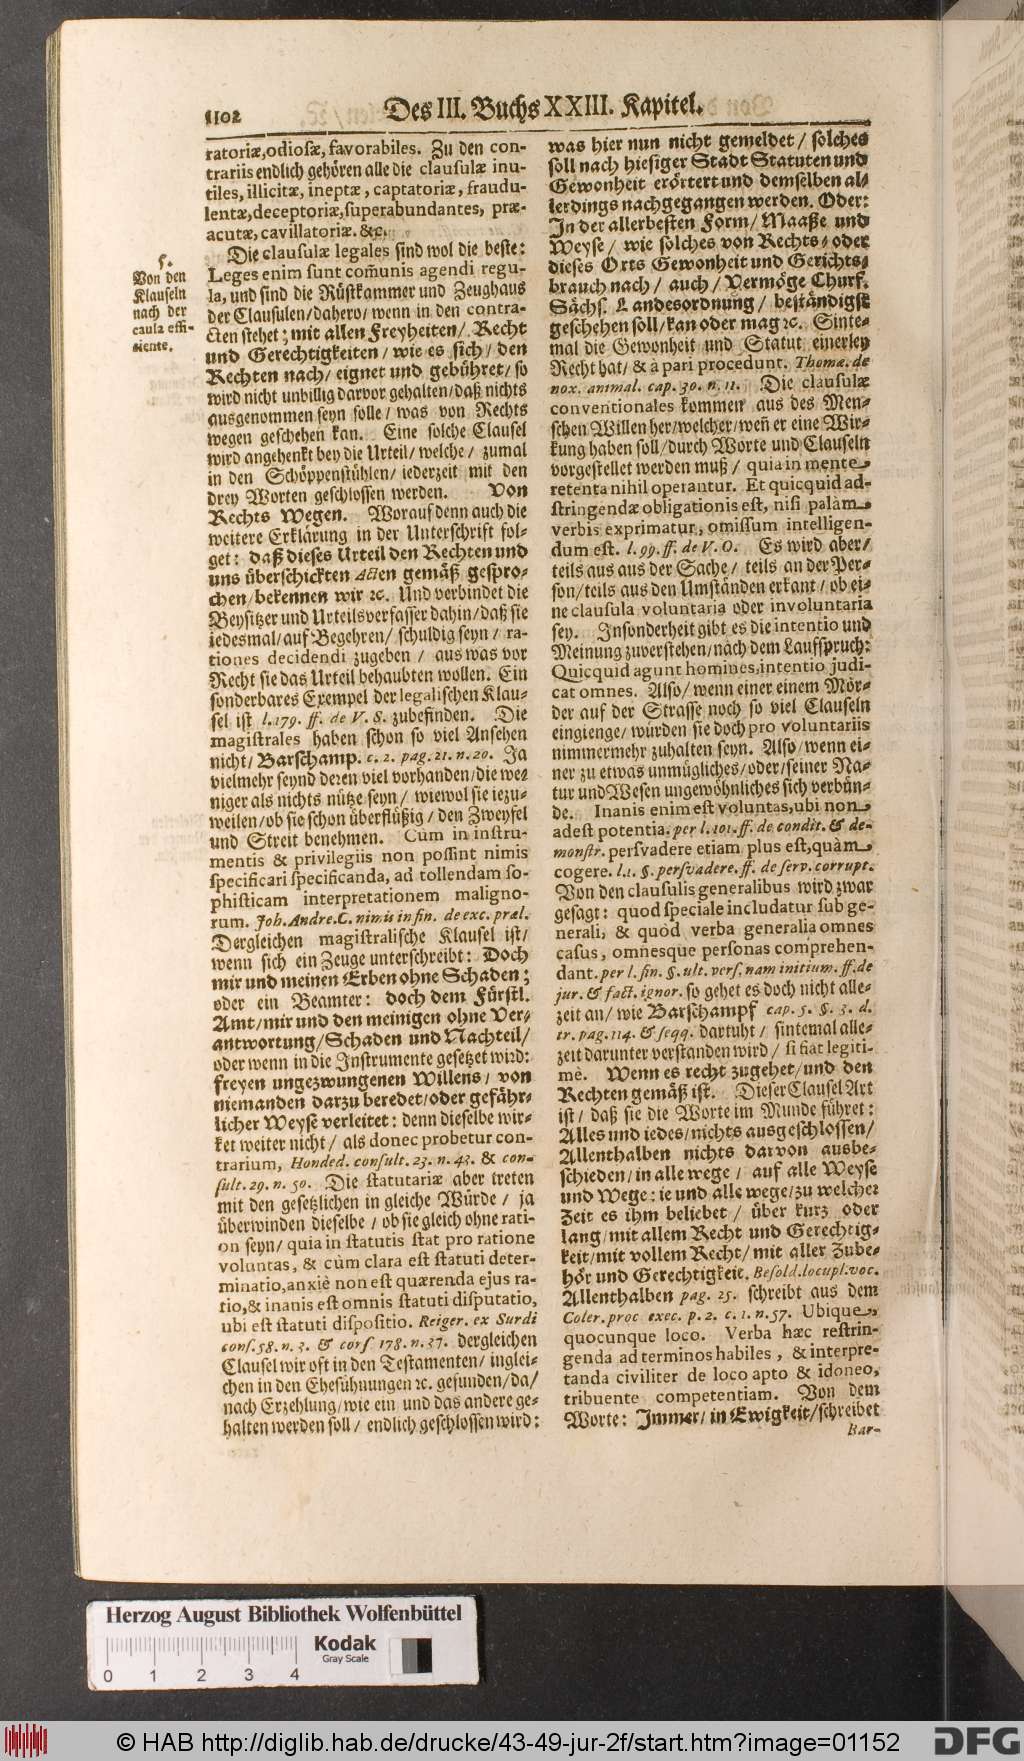 1102
Des III. Buchs XXIII. Kapitel.
ratoriæ, odiosæ, favorabiles. Zu den con-
trariis endlich gehören alle die clausulæ inu-
tiles, illicitæ, ineptæ, captatoriæ, fraudu-
lentæ, deceptoriæ, superabundantes, præ-
acutæ, cavillatoriæ. &c.
5.
Von den
Klauseln
nach der
causa effi-
ciente.
Die clausulæ legales sind wol die beste:
Leges enim sunt com̃unis agendi regu-
la, und sind die Rüstkammer und Zeughaus
der Clausulen/dahero/wenn in den contra-
cten stehet; mit allen Freyheiten/ Recht
und Gerechtigkeiten/ wie es sich/ den
Rechten nach/ eignet und gebühret/ so
wird nicht unbillig darvor gehalten/daß nichts
ausgenommen seyn solle/ was von Rechts
wegen geschehen kan. Eine solche Clausel
wird angehenkt bey die Urteil/ welche/ zumal
in den Schöppenstühlen/ iederzeit mit den
drey Worten geschlossen werden. Von
Rechts Wegen. Worauf denn auch die
weitere Erklärung in der Unterschrift fol-
get: daß dieses Urteil den Rechten und
uns überschickten Acten gemäß gespro-
chen/ bekennen wir ꝛc. Und verbindet die
Beysitzer und Urteilsverfasser dahin/ daß sie
iedesmal/ auf Begehren/ schuldig seyn/ ra-
tiones decidendi zugeben/ aus was vor
Recht sie das Urteil behaubten wollen. Ein
sonderbares Exempel der legalischen Klau-
sel ist l. 179. ff. de V. S. zubefinden. Die
magistrales haben schon so viel Ansehen
nicht/ Barschamp. c. 2. pag. 21. n. 20. Ja
vielmehr seynd deren viel vorhanden/die we-
niger als nichts nütze seyn/ wiewol sie iezu-
weilen/ob sie schon überflüßig/ den Zweyfel
und Streit benehmen. Cùm in instru-
mentis & privilegiis non possint nimis
specificari specificanda, ad tollendam so-
phisticam interpretationem maligno-
rum. Joh. Andre. C. nimis in fin. de exc. præl.
Dergleichen magistralische Klausel ist/
wenn sich ein Zeuge unterschreibt: Doch
mir und meinen Erben ohne Schaden;
oder ein Beamter: doch dem Fürstl.
Amt/ mir und den meinigen ohne Ver-
antwortung/ Schaden und Nachteil/
oder wenn in die Instrumente gesetzet wird:
freyen ungezwungenen Willens/ von
niemanden darzu beredet/oder gefähr-
licher Weyse verleitet: denn dieselbe wir-
ket weiter nicht/ als donec probetur con-
trarium, Honded. consult. 23. n. 43. & con-
sult. 29. n. 50. Die statutariæ aber treten
mit den gesetzlichen in gleiche Würde/ ja
überwinden dieselbe/ ob sie gleich ohne rati-
on seyn/ quia in statutis stat pro ratione
voluntas, & cùm clara est statuti deter-
minatio, anxiè non est quærenda ejus ra-
tio, & inanis est omnis statuti disputatio,
ubi est statuti dispositio. Reiger. ex Surdi
cons. 58. n. 3. & cons. 178. n. 37. dergleichen
Clausel wir oft in den Testamenten/ inglei-
chen in den Ehesühnungen ꝛc. gefunden/da/
nach Erzehlung/ wie ein und das andere ge-
halten werden soll/ endlich geschlossen wird:
was hier nun nicht gemeldet/ solches
soll nach hiesiger Stadt Statuten und
Gewonheit erörtert und demselben al-
lerdings nachgegangen werden. Oder:
In der allerbesten Form/ Maaße und
Weyse/ wie solches von Rechts- oder
dieses Orts Gewonheit und Gerichts-
brauch nach/ auch/ Vermöge Churf.
Sächs. Landesordnung/ beständigst
geschehen soll/ kan oder mag ꝛc. Sinte-
mal die Gewonheit und Statut einerley
Recht hat/ & à pari procedunt. Thomæ. de
nox. animal. cap. 30. n. 11. Die clausulæ
conventionales kommen aus des Men-
schen Willen her/ welcher/ wen̄ er eine Wir-
kung haben soll/ durch Worte und Clauseln
vorgestellet werden muß/ quia in mente
retenta nihil operantur. Et quicquid ad-
stringendæ obligationis est, nisi palàm
verbis exprimatur, omissum intelligen-
dum est. l. 99. ff. de V. O. Es wird aber/
teils aus aus der Sache/ teils an der Per-
son/ teils aus den Umständen erkant/ ob ei-
ne clausula voluntaria oder involuntaria
sey. Insonderheit gibt es die intentio und
Meinung zuverstehen/ nach dem Laufspruch:
Quicquid agunt homines, intentio judi-
cat omnes. Also/ wenn einer einem Mör-
der auf der Strasse noch so viel Clauseln
eingienge/ würden sie doch pro voluntariis
nimmermehr zuhalten seyn. Also/ wenn ei-
ner zu etwas unmügliches/ oder/ seiner Na-
tur und Wesen ungewöhnliches sich verbün-
de. Inanis enim est voluntas, ubi non
adest potentia. per l. 101. ff. de condit. & de-
monstr. persvadere etiam plus est, quàm
cogere. l. 1. §. persvadere. ff. de serv. corrupt.
Von den clausulis generalibus wird zwar
gesagt: quod speciale includatur sub ge-
nerali, & quòd verba generalia omnes
casus, omnesque personas comprehen-
dant. per l. fin. §. ult. vers. nam initium. ff. de
jur. & fact. ignor. so gehet es doch nicht alle-
zeit an/ wie Barschampf cap. 5. §. 3. d.
tr. pag. 114. & seqq. dartuht/ sintemal alle-
zeit darunter verstanden wird/ si fiat legiti-
mè. Wenn es recht zugehet/ und den
Rechten gemäß ist. Dieser Clausel Art
ist/ daß sie die Worte im Munde führet:
Alles und iedes/ nichts ausgeschlossen/
Allenthalben nichts darvon ausbe-
schieden/ in alle wege/ auf alle Weyse
und Wege: ie und alle wege/ zu welcher
Zeit es ihm beliebet/ über kurz oder
lang/ mit allem Recht und Gerechtig-
keit/ mit vollem Recht/ mit aller Zube-
hör und Gerechtigkeit. Besold. locupl. voc.
Allenthalben pag. 25. schreibt aus dem
Coler. proc exec. p. 2. c. 1. n. 57. Ubique,
quocunque loco. Verba hæc restrin-
genda ad terminos habiles, & interpre-
tanda civiliter de loco apto & idoneo,
tribuente competentiam. Von dem
Worte: Immer/ in Ewigkeit/ schreibet
Bar-
Herzog August Bibliothek Wolfenbüttel
Kodak
Gray Scale
0 1 2 3 4
© HAB http://diglib.hab.de/drucke/43-49-jur-2f/start.htm?image=01152
DFG